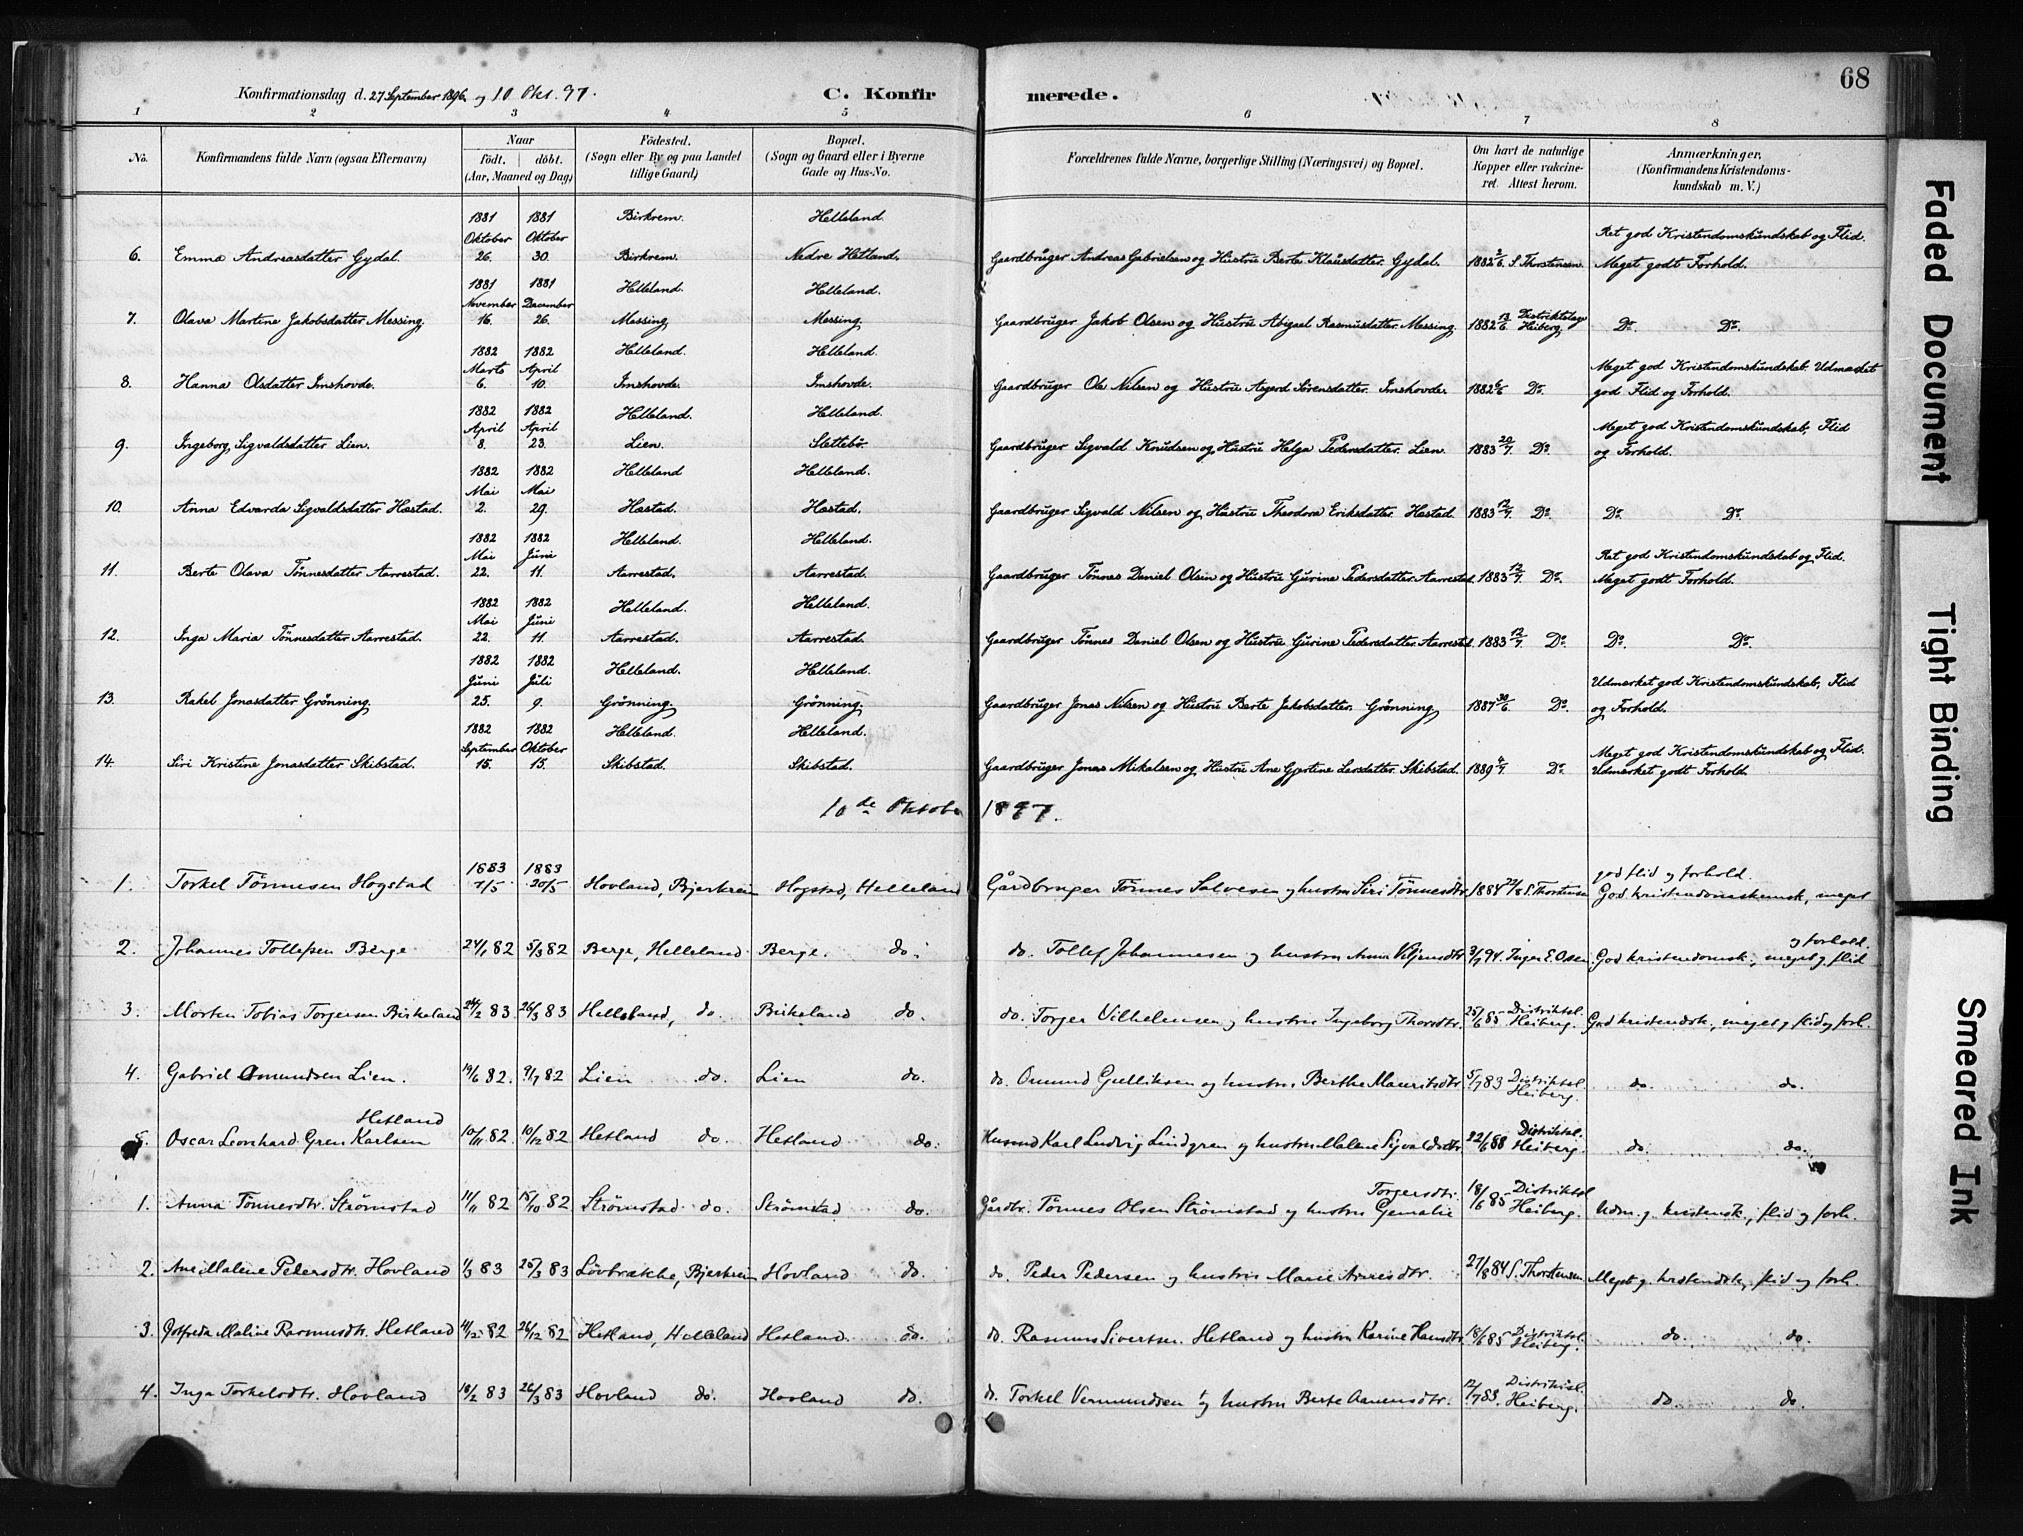 68
Konfirmationsdag d. 27 September 1896 og 10 Okt. 97.
C. Konfirmerede.
1 2 3 4 5 6 7 8
No.
Konfirmandens fulde Navn (ogsaa Efternavn)
Naar
födt. döbt.
(Aar, Maaned og Dag)
Födested.
(Sogn eller By og paa Landet
tillige Gaard)
Bopæl.
(Sogn og Gaard eller i Byerne
Gade og Hus-No.
Forældrenes fulde Navne, borgerlige Stilling (Næringsvei) og Bopæl.
Om havt de naturlige
Kopper eller vakcine-
ret. Attest herom.
Anmærkninger.
(Konfirmandens Kristendoms-
kundskab m. V.)
1881 1881 Birkrem. Helleland.
Oktober Oktober Ret god Kristendomskundskab og Flid.
6. Emma Andreasdatter Gydal. 26. 30. Birkrem. Nedre Hetland. Gaardbruger Andreas Gabrielsen og Hustru Berte Klausdatter Gydal. 1882 2/6 S. Thorstensen. Meget godt Forhold.
1881 1881 Helleland. Helleland.
November December Distriktslæge
7. Olava Martine Jakobsdatter Messing. 16. 26. Messing Messing Gaardbruger Jakob Olsen og Hustru Abigael Rasmusdatter Messing 1882 13/6 Heiberg. Do. Do.
1882 1882 Helleland. Helleland.
Marts April Meget god Kristendomskundskab. Udmærket
8. Hanna Olsdatter Imshovde. 6. 10. Imshovde. Imshovde. Gaardbruger Ole Nilsen og Hustru Asgerd Sörensdatter Imshovde. 1882 Do. god Flid og Forhold.
1882 1882 Helleland. Helleland.
April April Meget god Kristendomskundskab, Flid
9. Ingeborg Sigvaldsdatter Lien. 8. 23. Lien. Slettebö. Gaardbruger Sigvald Knudsen og Hustru Helga Pedersdatter Lien. 1883 20/7 Do. og Forhold.
1882 1882 Helleland Helleland.
Mai Mai
10. Anna Edvarda Sigvaldsdatter Hæstad. 2. 29. Hæstad. Hæstad. Gaardbruger Sigvald Nilsen og Hustru Theodora Eriksdatter Hæstad. 1883 12/7 Do. Do. Do.
1882 1882 Helleland. Helleland.
Mai Juni Ret god Kristendomskundskab og Flid.
11. Berte Olava Tönnesdatter Aarrestad. 22. 11. Aarrestad. Aarrestad. Gaardbruger Tönnes Daniel Olsen og Hustru Gurine Pedersdatter Aarrestad. 1883 12/7 Do. Meget godt Forhold.
1882 1882 Helleland. Helleland.
Mai Juni
12. Inga Maria Tönnesdatter Aarrestad. 22. 11. Aarrestad. Aarrestad. Gaardbruger Tönnes Daniel Olsen og Hustru Gurine Pedersdatter Aarrestad. 1883 12/7 Do. Do. Do.
1882 1882 Helleland. Helleland.
Juni Juli Udmærket god Kristendomskundskab, Flid
13. Rakel Jonasdatter Grönning. 25. 9. Grönning. Grönning. Gaardbruger Jonas Nilsen og Hustru Berte Jakobsdatter Grönning 1887 30/6 Do. og Forhold.
1882 1882 Helleland. Helleland.
September Oktober Meget god Kristendomskundskab og Flid.
14. Siri Kristine Jonasdatter Skibstad. 15. 15. Skibstad. Skibstad. Gaardbruger Jonas Mikalsen og Hustru Ane Gjertine Larsdatter Skibstad. 1889 Do. Udmærket godt Forhold.
10de Oktober 1897.
1883 1883 god flid og forhold.
1. Torkel Tönnesen Hogstad 7/5 20/5 Hovland, Bjerkreim Hogstad, Helleland Gårdbruger Tönnes Salvesen og hustru Siri Tönnesdtr. 1884 22/8 S. Thorstensen God kristendomskunsk, meget
og forhold.
2. Johannes Tollefsen Berge 24/1 82 5/3 82 Berge, Helleland Berge. do. do. Tollef Johannesen og hustru Anna Viljemsdtr 3/7 94. Inger E. Ossen God kristendomsk., meget g. flid
3. Morten Tobias Torgersen Birkeland 24/2 83 26/3 83 Helleland, do. Birkeland do. do. Torger Vilhelmsen og hustru Ingeborg Thoresdtr 25/6 85 Distriktsl. Heiberg. God kristendsk., meget g. flid og forh.
4. Gabriel Omundsen Lien. 19/6 82. 9/7 82 Lien do. Lien do. do. Omund Gulliksen og hustru Berthe Mauritsdtr 5/7 83 Distriktsl. Heiberg. do. do.
Hetland
5. Oscar Leonhard Gren Karlsen 10/11 82. 10/12 82 Hetland do. Hetland do. Husmd Karl Ludvig Lindgren og hustru Malene Sigvaldsdtr. 22/6 88 Distriktsl. Heiberg. do. do.
Torgersdtr.
1. Anna Tönnesdtr. Strömstad 11/11 82 15/10 82 Strömstad do. Strömstad do. Gårdbr. Tönnes Olsen Strömstad og hustru Gemalie 18/6 85 Distriktsl. Heiberg. Udm. g. kristensk., flid og forh.
2. Ane Malene Pedersdtr. Hovland 1/3 83 26/3 83 Lövbrække, Bjerkreim Hovland do. do. Peder Pedersen og hustru Marie Arnesdtr. 27/8 84 S. Thorstensen Meget g. kristendsk., flid og forh.
3. Gotfreda Maline Rasmusdtr. Hetland 11/12 82 26/12 82 Hetland, Helleland Hetland. do. do. Rasmus Sivertsen Hetland og hustru Karine Hansdtr. 18/6 85 Distriktsl. Heiberg. do. do.
4. Inga Torkelsdtr. Hovland 18/2 83 26/3 83 Hovland do. Hovland do. do. Torkel Vermundsen og hustru Berte Aanensdtr. 12/7 83. Distriktsl. Heiberg. do. do.
Faded Document
Tight Binding
Smeared Ink